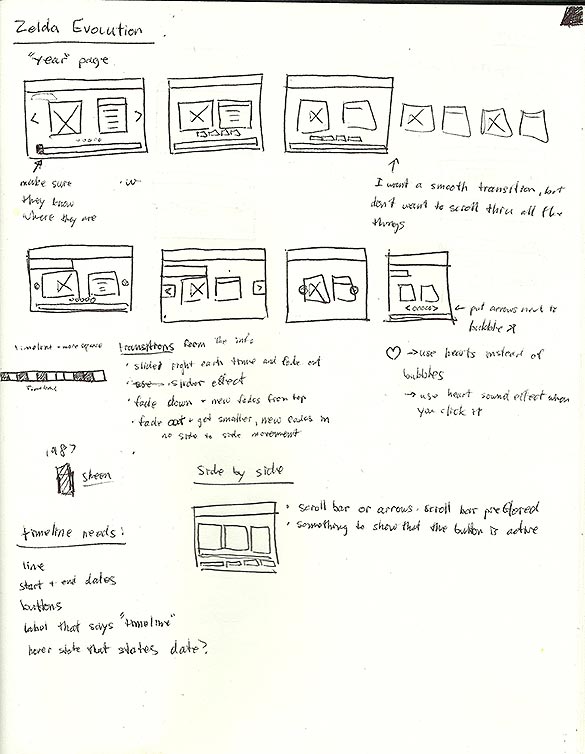 Zelda Evolution
"year" page
make sure
they know
where they are
I want a smooth transition, but
don't want to scroll thru all the
things
put arrows next to
bubbles
timeline
more space
Timeline
transitions from the
slides right each time and fade out
slider effect
fade down + new fades from top
fade out + get smaller, new fades in
no side to side movement
→ use hearts instead of
bubbles
→ use heart sound effect when
you click it
1987
sheen
Side by side
scroll bar or arrows. scroll bar preferred
something to show that the button is active
timeline needs:
line
start + end dates
buttons
label that says "timeline"
hover state that states date?